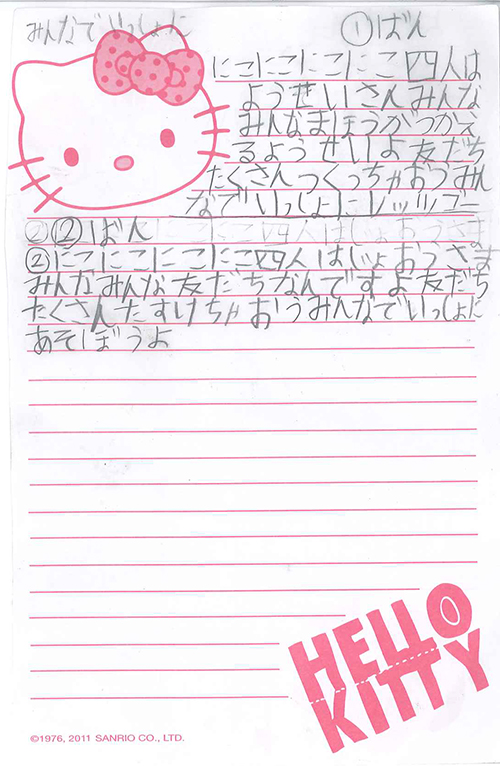 みんなでいっしょに
①ばん
にこにこにこにこ四人は
ようせいさんみんな
みんなまほうがつかえ
るようせいよ友だち
たくさんつくっちゃおうみん
なでいっしょにレッツゴー
②②ばんにこにこ四人はじょおうさま
②にこにこにこにこ四人はじょおうさま
みんなみんな友だちなんですよ友だち
たくさんたすけちゃおうみんなでいっしょに
あそぼうよ
HELLO
KITTY
©1976, 2011 SANRIO CO., LTD.